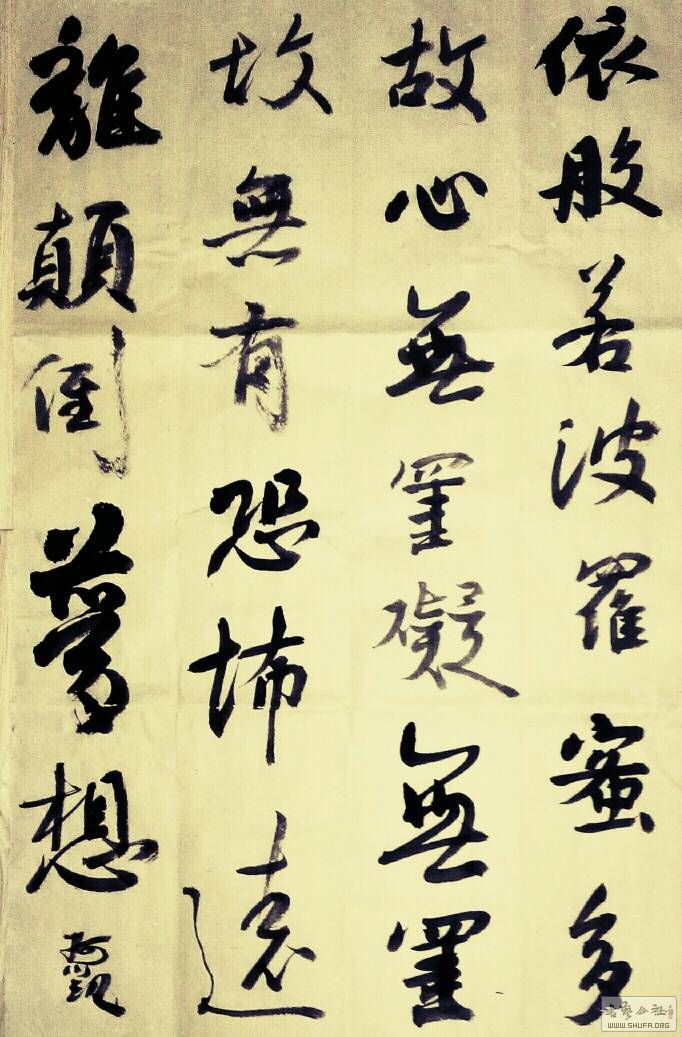 依般若波羅蜜多
故心無罣礙無罣
故無有恐怖遠
離顛倒夢想
WWW.SHUFA.ORG